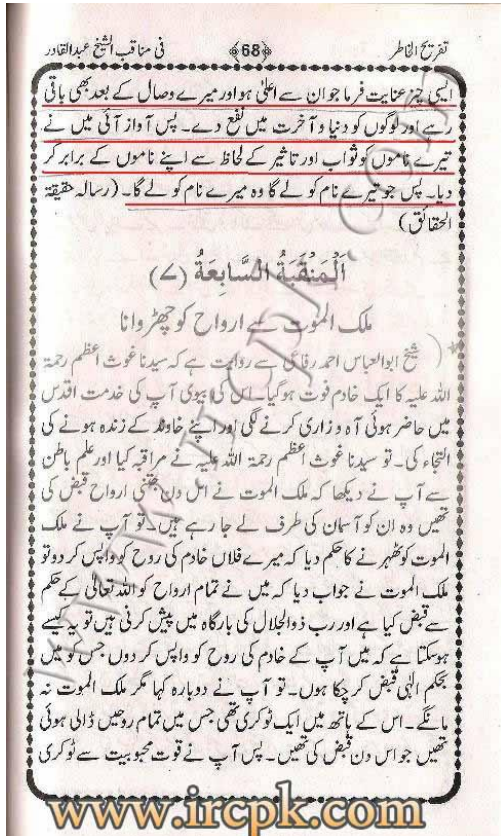 تفریح الخاطر ﴿68﴾ فی مناقب الشیخ عبدالقادر
ایسی چیز عنایت فرما جو ان سے اعلیٰ ہو اور میرے وصال کے بعد بھی باقی
رہے اور لوگوں کو دنیا و آخرت میں نفع دے۔ پس آواز آئی میں نے
تیرے ناموں کو ثواب اور تاثیر کے لحاظ سے اپنے ناموں کے برابر کر
دیا۔ پس جو تیرے نام کو لے گا وہ میرے نام کو لے گا۔ (رسالہ حقیقۃ
الحقائق)
اَلْمَنْقَبَةُ السَّابِعَةُ (۷)
ملک الموت سے ارواح کو چھڑوانا
شیخ ابوالعباس احمد رفاعی سے روایت ہے کہ سیدنا غوث اعظم رحمۃ
اللہ علیہ کا ایک خادم فوت ہو گیا۔ اس کی بیوی آپ کی خدمت اقدس
میں حاضر ہوئی آہ و زاری کرنے لگی اور اپنے خاوند کے زندہ ہونے کی
التجاء کی۔ تو سیدنا غوث اعظم رحمۃ اللہ علیہ نے مراقبہ کیا اور علم باطن
سے آپ نے دیکھا کہ ملک الموت نے اس دن جتنی ارواح قبض کی
تھیں وہ ان کو آسمان کی طرف لے جا رہے ہیں۔ تو آپ نے ملک
الموت کو ٹھہرنے کا حکم دیا کہ میرے فلاں خادم کی روح کو واپس کر دو تو
ملک الموت نے جواب دیا کہ میں نے تمام ارواح کو اللہ تعالیٰ کے حکم
سے قبض کیا ہے اور رب ذوالجلال کی بارگاہ میں پیش کرنی ہیں تو یہ کیسے
ہو سکتا ہے کہ میں آپ کے خادم کی روح کو واپس کر دوں جس کو میں
بحکم الٰہی قبض کر چکا ہوں۔ تو آپ نے دوبارہ کہا مگر ملک الموت نہ
مانگے۔ اس کے ہاتھ میں ایک ٹوکری تھی جس میں تمام روحیں ڈالی ہوئی
تھیں جو اس دن قبض کی تھیں۔ پس آپ نے قوت محبوبیت سے ٹوکری
www.ircpk.com